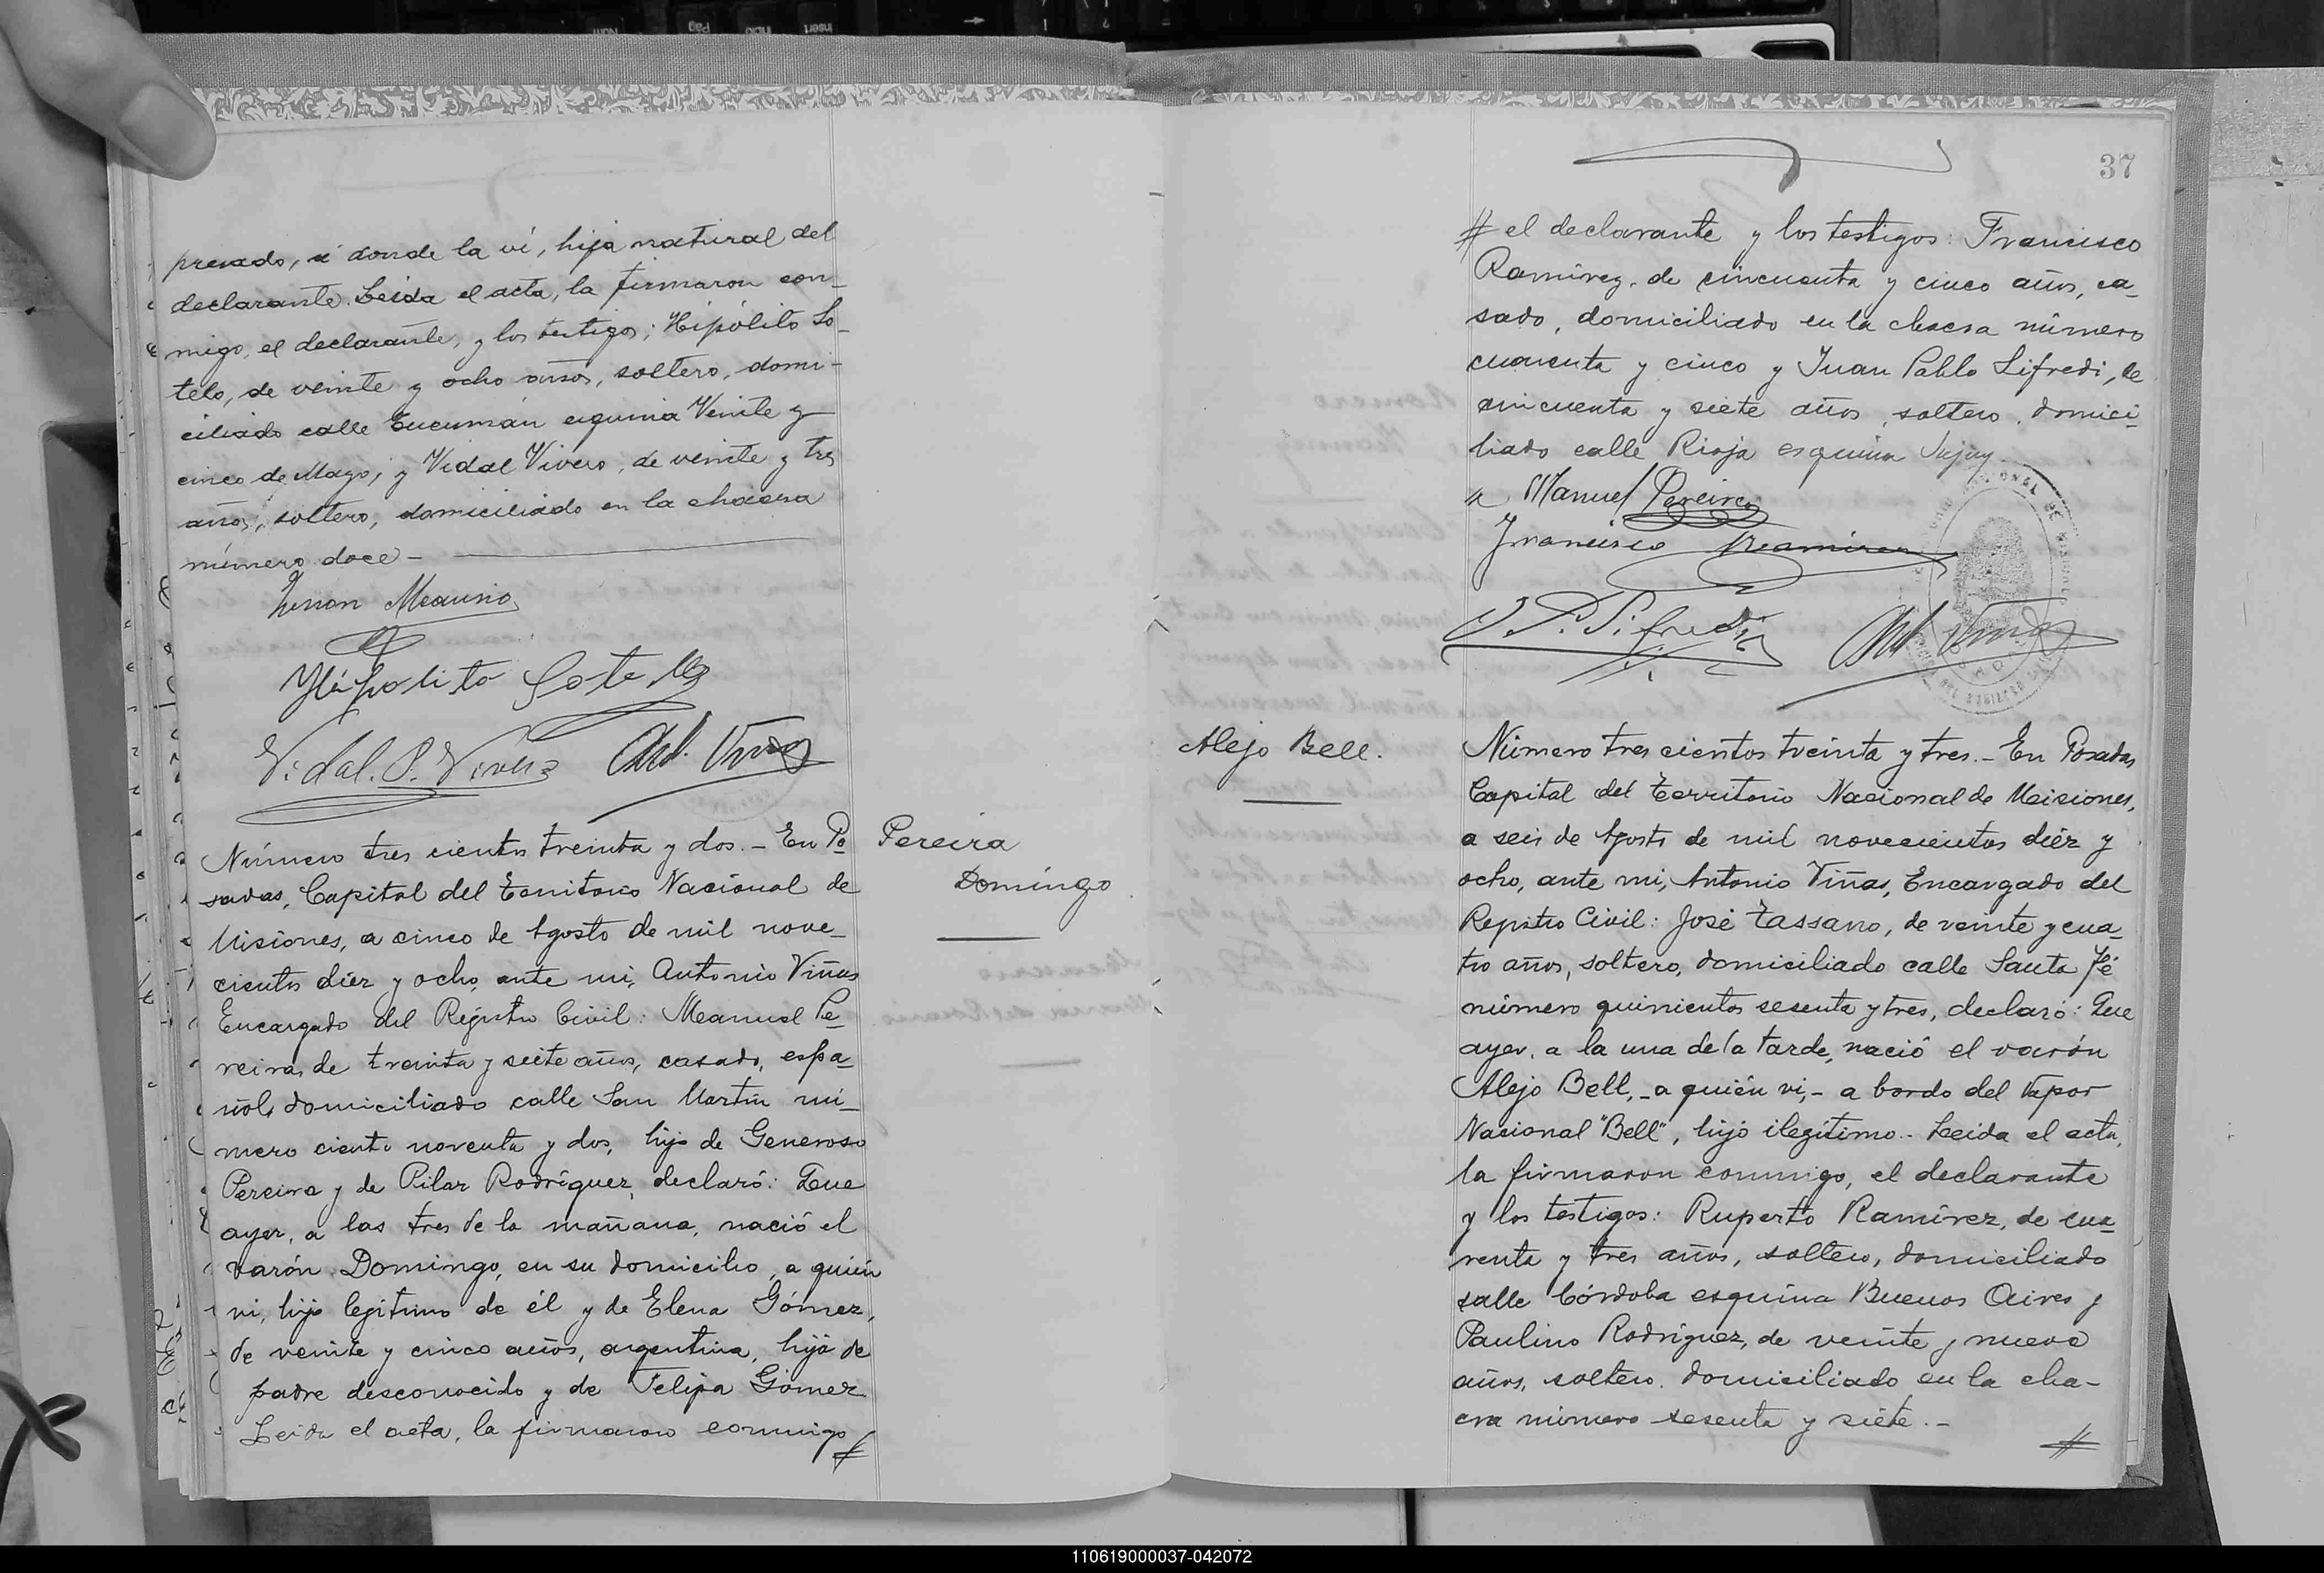 presado, a donde la ví, hija natural del
declarante. Leida el acta, la firmaron con-
migo, el declarante, y los testigos; Hipólito So-
telo, de veinte y ocho años, soltero, domi-
ciliado calle Tucumán esquina Veinte y
cinco de Mayo; y Vidal Vivero, de veinte y tres
años, soltero, domiciliado en la chacra
número doce -
Hipolito Sotelo
Vidal. P. Vivero Ant. Viñas
Número tres cientos treinta y dos. - En Po
sadas, Capital del Territorio Nacional de
Misiones, a cinco de Agosto de mil nove-
cientos diéz y ocho, ante mi, Antonio Viñas
Encargado del Registro Civil: Manuel Pe-
reira, de treinta y siete años, casado, espa-
ñol, domiciliado calle San Martín nú-
mero ciento noventa y dos, hijo de Generoso
Pereira y de Pilar Rodríguez, declaró: Que
ayer, a las tres de la mañana, nació el
varón Domingo, en su domicilio, a quién
vi, hijo legítimo de él y de Elena Gómez,
de veinte y cinco años, argentina, hija de
padre desconocido y de Felipa Gómez
Leida el acta, la firmaron conmigo #
Pereira
Domingo
37
# el declarante y los testigos: Francisco
Ramírez, de cincuenta y cinco años, ca-
sado, domiciliado en la chacra número
cuarenta y cinco y Juan Pablo Sifredi, de
cincuenta y siete años, soltero, domici-
liado calle Rioja esquina Jujuy.
Manuel Pereira
Francisco Ramirez
J. P. Sifredi Ant Viñas
Alejo Bell.
Número tres cientos treinta y tres. - En Posadas,
Capital del Territorio Nacional de Misiones,
a seis de Agosto de mil novecientos diéz y
ocho, ante mi, Antonio Viñas, Encargado del
Registro Civil: José Tassano, de veinte y cua-
tro años, soltero, domiciliado calle Santa Fé
número quinientos sesenta y tres, declaró: Que
ayer, a la una de la tarde, nació el varón
Alejo Bell, - a quién vi, - a bordo del Vapor
Nacional "Bell", hijo ilegítimo. - Leida el acta,
la firmaron conmigo, el declarante
y los testigos: Ruperto Ramírez, de cua-
renta y tres años, soltero, domiciliado
calle Córdoba esquina Buenos Aires y
Paulino Rodríguez, de veinte y nueve
años, soltero, domiciliado en la cha-
cra número sesenta y siete. -
#
110619000037-042072